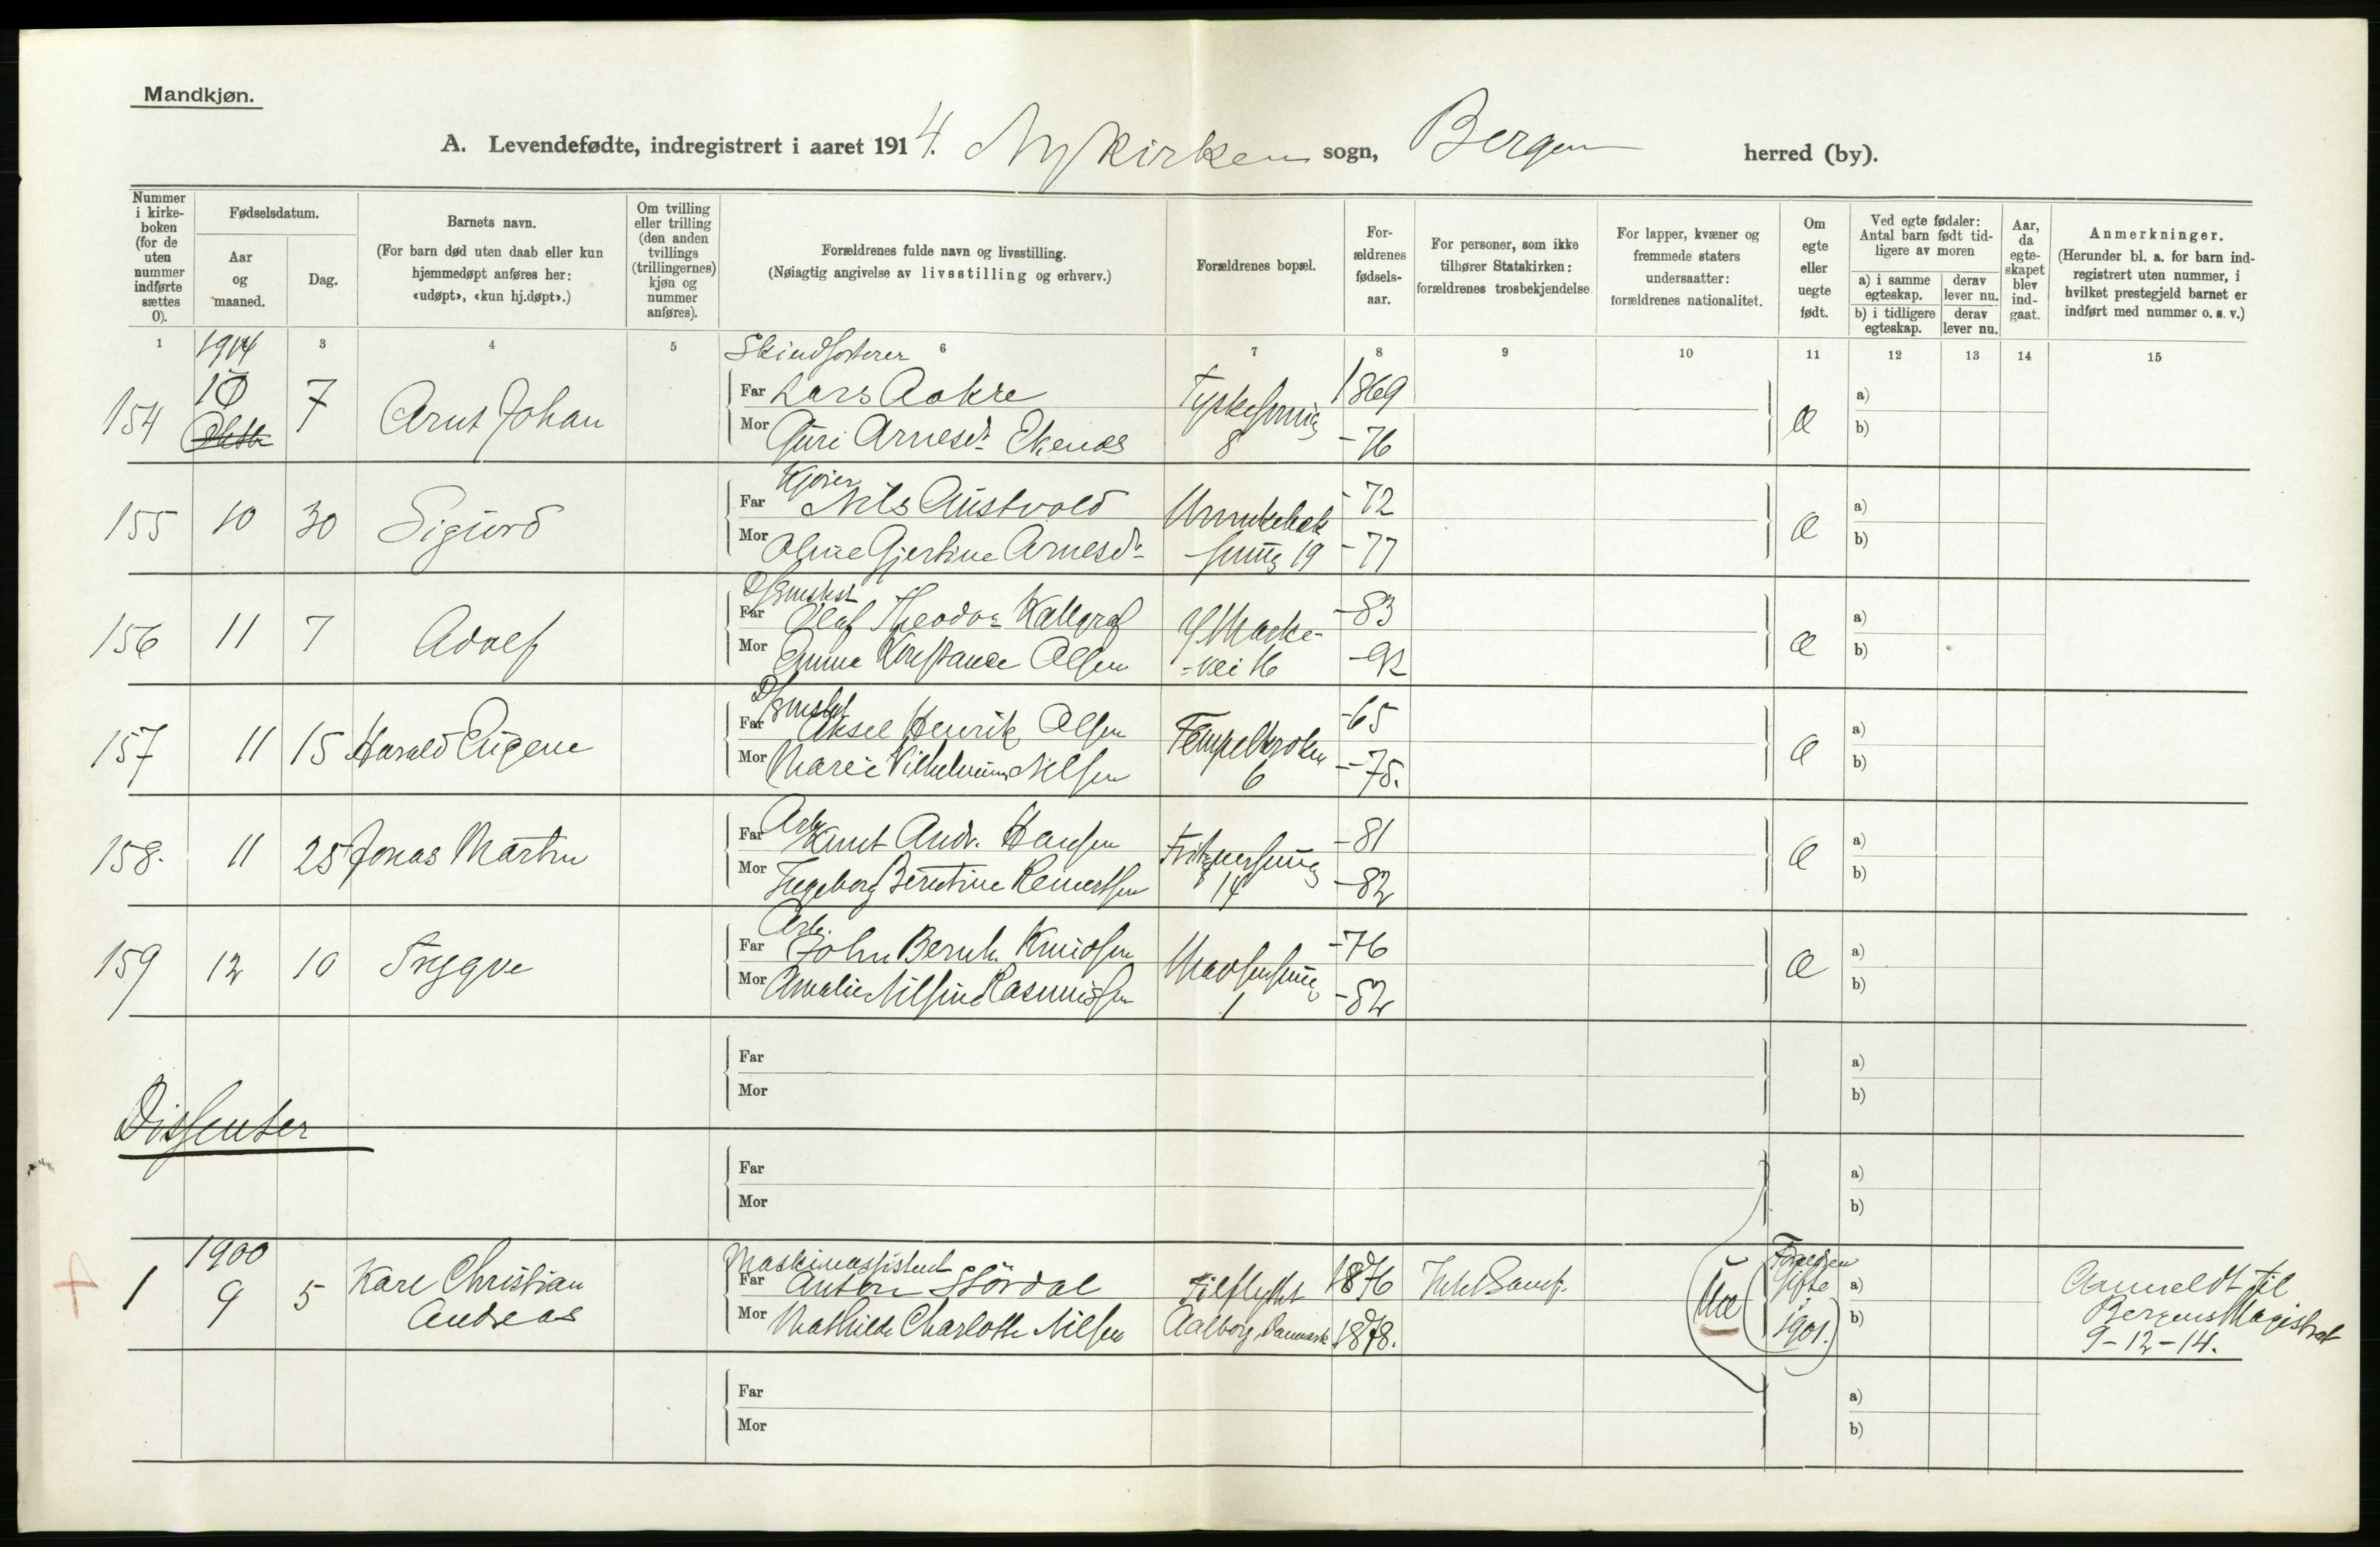 Mandkjøn.
A. Levendefødte, indregistrert i aaret 1914. Nykirken sogn, Bergen herred (by).
Nummer i kirke-boken (for de uten nummer indførte sættes 0).
Fødselsdatum.
Aar og maaned.
Dag.
Barnets navn.
(For barn død uten daab eller kun hjemmedøpt anføres her: «udøpt», «kun hj.døpt».)
Om tvilling eller trilling (den anden tvillings (trillingernes) kjøn og nummer anføres).
Forældrenes fulde navn og livsstilling.
(Nøiagtig angivelse av livsstilling og erhverv.)
Forældrenes bopæl.
For-ældrenes fødsels-aar.
For personer, som ikke tilhører Statskirken: forældrenes trosbekjendelse.
For lapper, kvæner og fremmede staters undersaatter: forældrenes nationalitet.
Om egte eller uegte født.
Ved egte fødsler: Antal barn født tid-ligere av moren
a) i samme egteskap. derav lever nu.
b) i tidligere egteskap. derav lever nu.
Aar, da egte-skapet blev ind-gaat.
Anmerkninger.
(Herunder bl. a. for barn ind-registrert uten nummer, i hvilket prestegjeld barnet er indført med nummer o. s. v.)
1 3 4 5 6 7 8 9 10 11 12 13 14 15
1914
154 10 7 Arnt Johan
Far Lars Aakre 1869 a)
Mor Guri Arnesdr. Ekenæs 8 -76 Æ b)
155 10 30 Sigurd
Kjører
Far Nils Austvold -72 a)
Mor Oline Gjertine Arnesdr. smug 19 -77 Æ b)
156 11 7 Adolf
Far Olaf Theodor Kallgraf -83 a)
Mor Anna Konstanse Olsen =vei 16 -92 Æ b)
157 11 15 Harald Eugene
Far Aksel Henrik Olsen Tempelkroken -65 a)
Mor Marie Vilhelmine Nilsen 6 -75. Æ b)
158. 11 25 Jonas Martin
Arb.
Far Knut Andr. Hansen Fritznersmug -81 a)
Mor Ingeborg Berntine Reinertsen 14 -82 Æ b)
159 12 10 Trygve
Arb.
Far John Bernh. Knudsen Madsensmug -76 a)
Mor Amalie Nilsine Rasmussen 1 -82 Æ b)
Far a)
Mor b)
Dissenter
Far a)
Mor b)
1900
1 9 5 Karl Christian Andreas
Maskinassistent
Far Anton Stördal Tilflyttet 1876 a)
Mor Mathilde Charlotte Nilsen Aalborg Danmark 1878. Uæ b)
gifte i 1901.
Anmeldt til
Bergens Magistrat
9-12-14.
Far a)
Mor b)